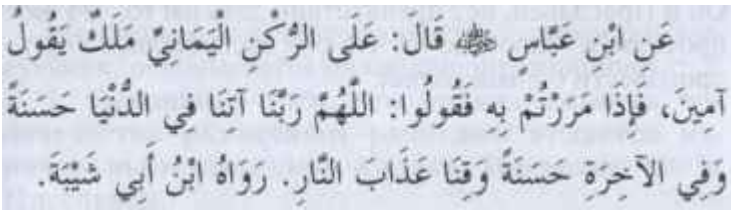 عَنِ ابْنِ عَبَّاسٍ ﷺ قَالَ: عَلَى الرُّكْنِ الْيَمَانِيِّ مَلَكٌ يَقُولُ
آمِينَ، فَإِذَا مَرَرْتُمْ بِهِ فَقُولُوا: اللَّهُمَّ رَبَّنَا آتِنَا فِي الدُّنْيَا حَسَنَةً
وَفِي الآخِرَةِ حَسَنَةً وَقِنَا عَذَابَ النَّارِ. رَوَاهُ ابْنُ أَبِي شَيْبَةَ.